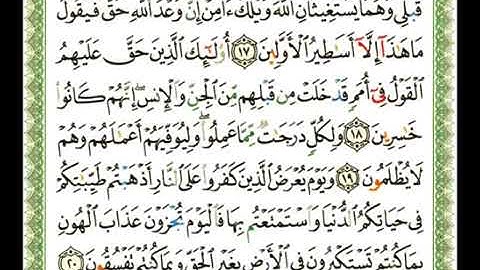 قَبْلِي وَهُمَا يَسْتَغِيثَانِ ٱللَّهَ وَيْلَكَ ءَامِنْ إِنَّ وَعْدَ ٱللَّهِ حَقٌّ فَيَقُولُ
مَا هَٰذَآ إِلَّآ أَسَٰطِيرُ ٱلْأَوَّلِينَ ١٧ أُو۟لَٰٓئِكَ ٱلَّذِينَ حَقَّ عَلَيْهِمُ
ٱلْقَوْلُ فِىٓ أُمَمٍ قَدْ خَلَتْ مِن قَبْلِهِم مِّنَ ٱلْجِنِّ وَٱلْإِنسِ ۖ إِنَّهُمْ كَانُوا۟
خَٰسِرِينَ ١٨ وَلِكُلٍّ دَرَجَٰتٌ مِّمَّا عَمِلُوا۟ ۖ وَلِيُوَفِّيَهُمْ أَعْمَٰلَهُمْ وَهُمْ
لَا يُظْلَمُونَ ١٩ وَيَوْمَ يُعْرَضُ ٱلَّذِينَ كَفَرُوا۟ عَلَى ٱلنَّارِ أَذْهَبْتُمْ طَيِّبَٰتِكُمْ
فِى حَيَاتِكُمُ ٱلدُّنْيَا وَٱسْتَمْتَعْتُم بِهَا فَٱلْيَوْمَ تُجْزَوْنَ عَذَابَ ٱلْهُونِ
بِمَا كُنتُمْ تَسْتَكْبِرُونَ فِى ٱلْأَرْضِ بِغَيْرِ ٱلْحَقِّ وَبِمَا كُنتُمْ تَفْسُقُونَ ٢٠